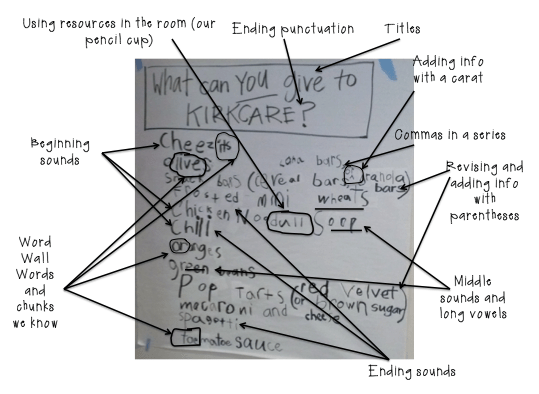 Using resources in the room (our
pencil cup)
Ending punctuation
Titles
Adding info
with a carat
Commas in a series
Revising and
adding info
with
parentheses
Middle
sounds and
long vowels
Ending sounds
Beginning
sounds
Word
Wall
Words
and
chunks
we know
What can YOU give to
KIRKCARE?
Cheez its
olives
bars
bars (cereal bars or granola bars)
Frosted mini wheats
Chicken Noodull Soop
Chili
oranges
green beans
Pop Tarts (red velvet
or brown sugar)
macaroni and cheese
spagetti
tomatoe sauce